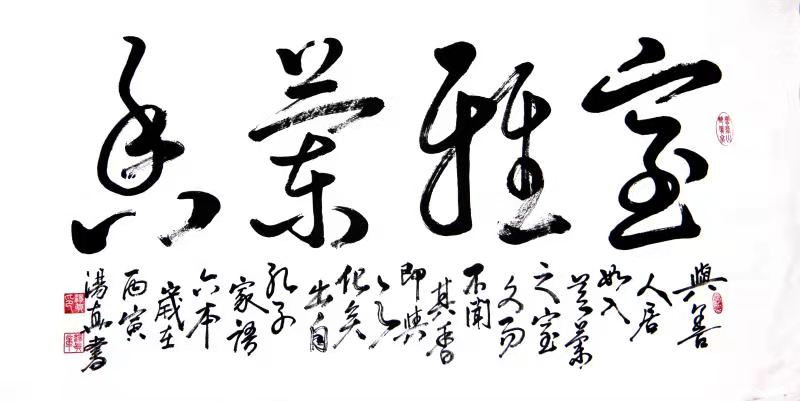 室雅蘭香
與善
人居
如入
芝蘭
之室
久而
不聞
其香
即與
之
化矣
出自
孔子
家語
六本
歲在
丙寅
湯書